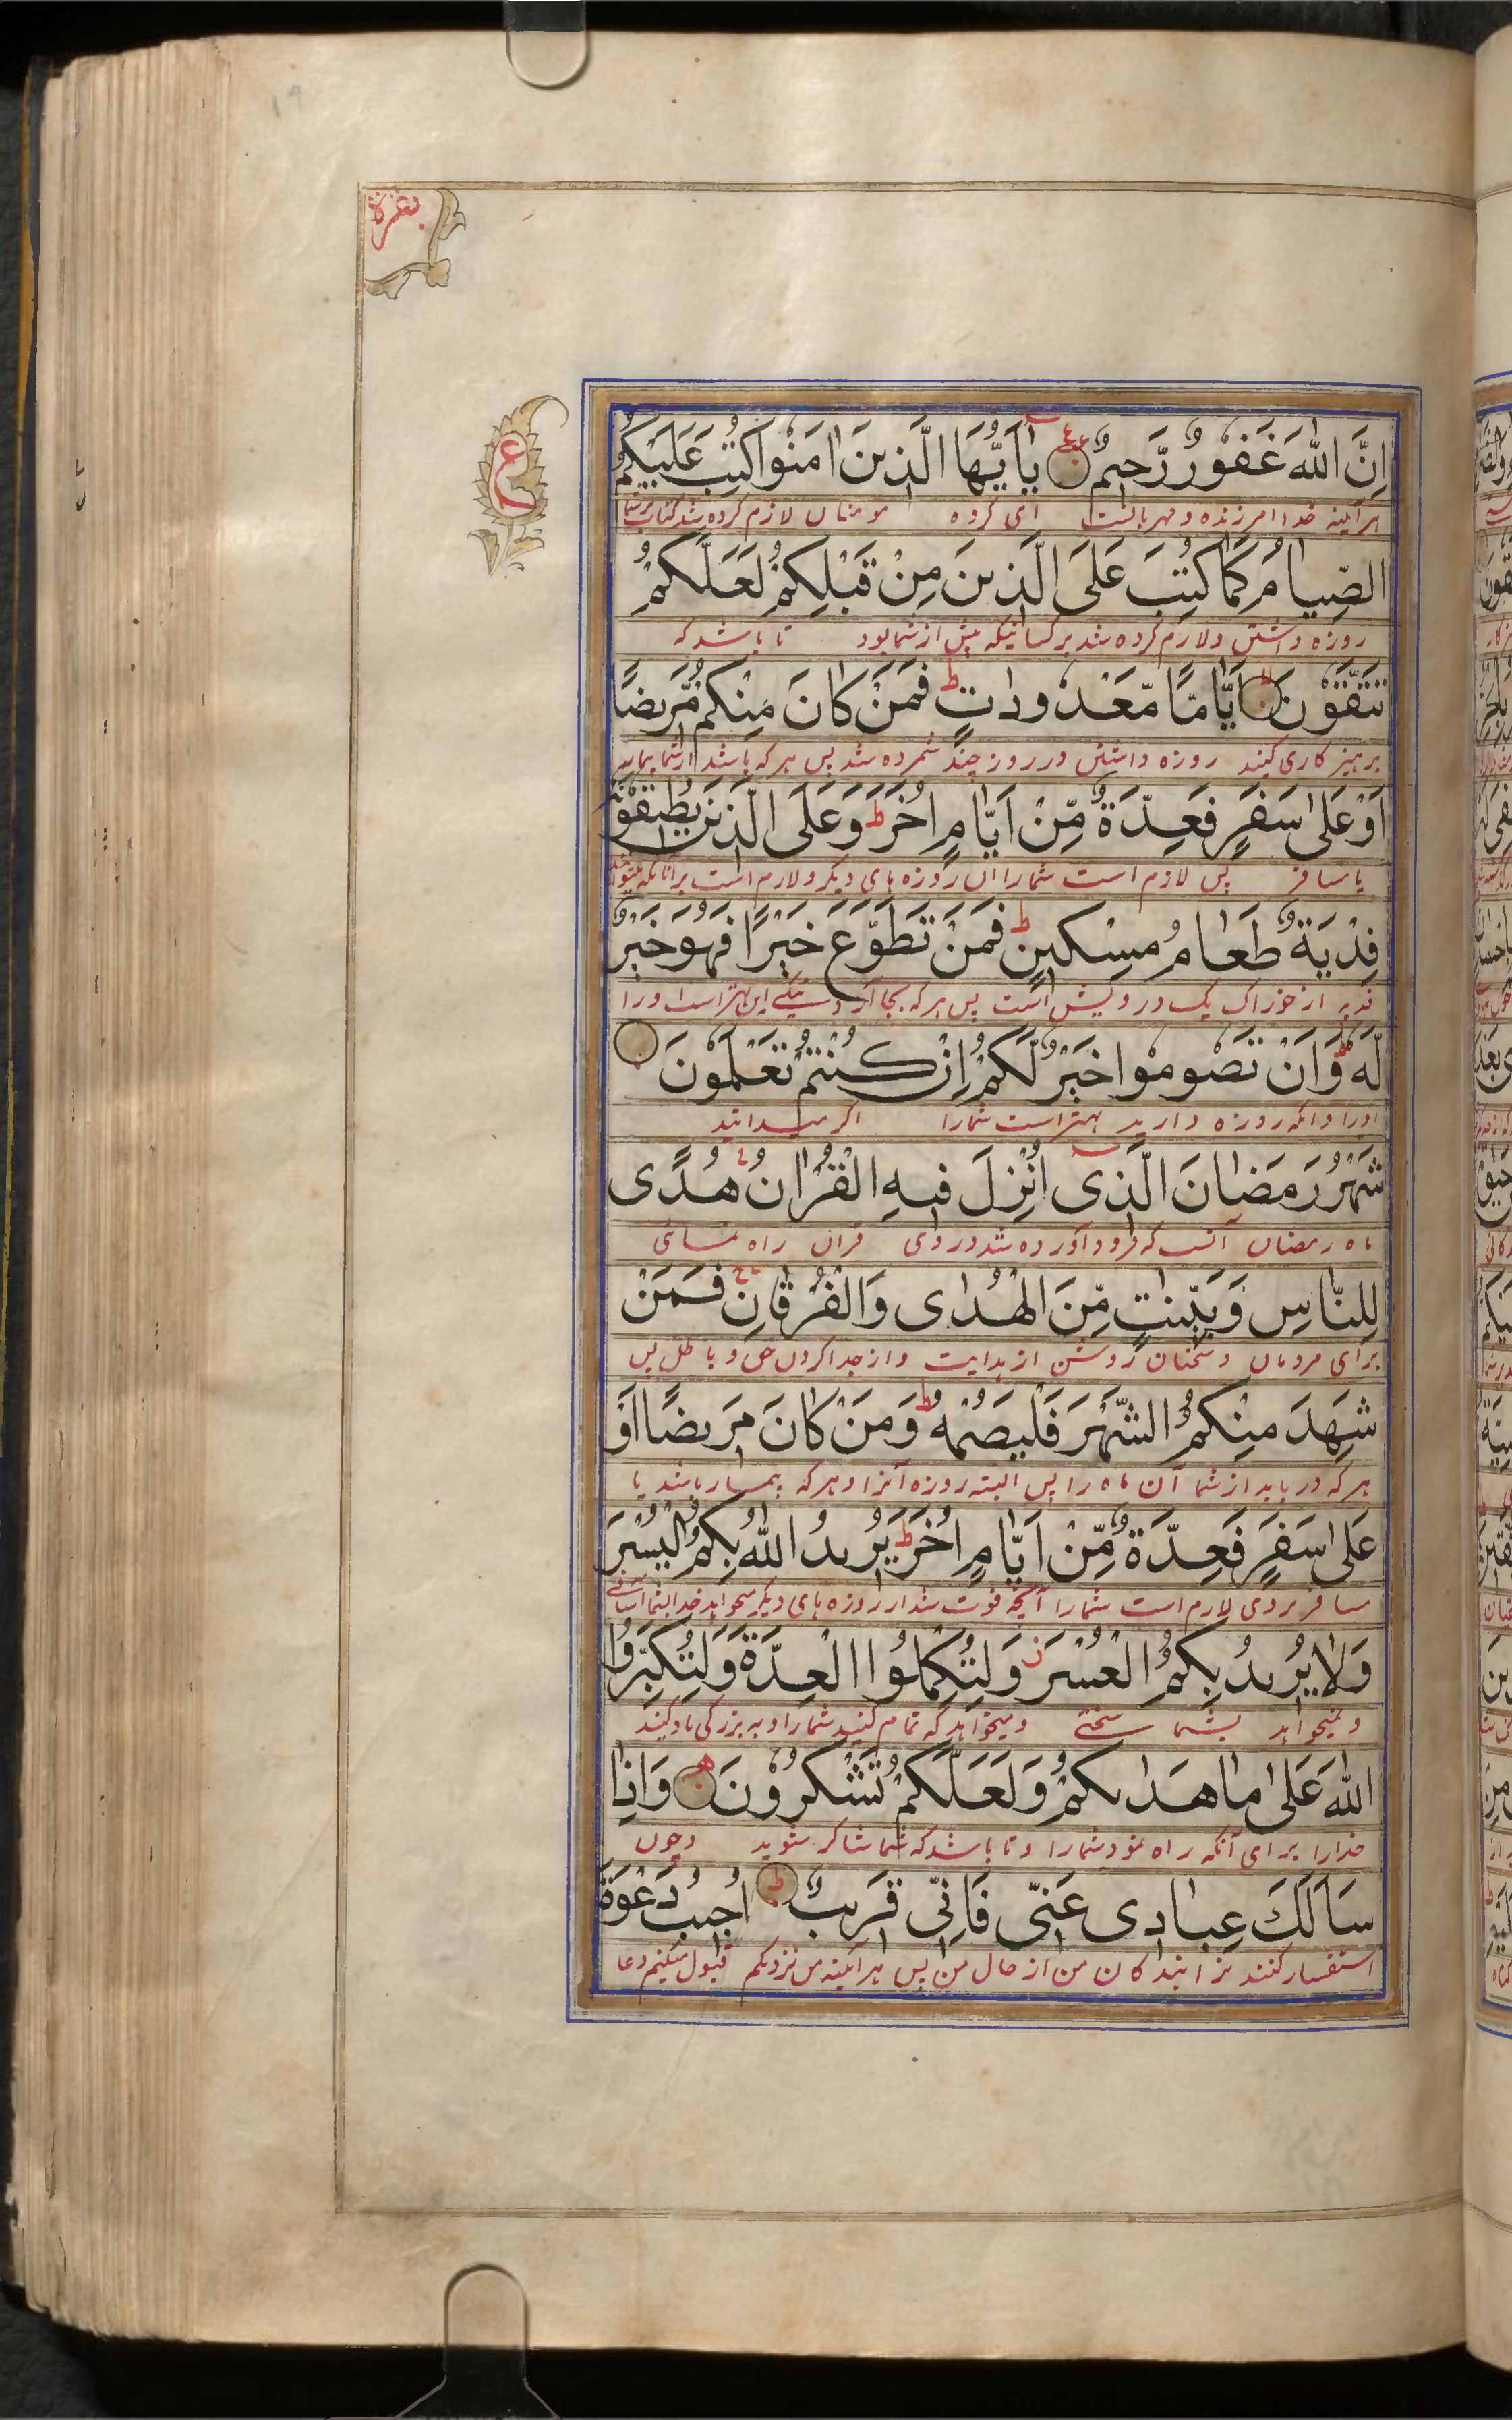 بقرة
ع
اِنَّ اللهَ غَفُورٌ رَّحِيمٌ يٰاَيُّهَا الَّذِينَ اٰمَنُوا كُتِبَ عَلَيْكُمُ
هر آینه خدا امرزنده و مهربانست ای گروه مومنان لازم کرده شد
الصِّيَامُ كَمَا كُتِبَ عَلَى الَّذِينَ مِنْ قَبْلِكُمْ لَعَلَّكُمْ
روزه داشتن ولازم کرده شد بر کسانیکه پیش از شما بود تا باشد که
تَتَّقُونَ اَيَّامًا مَّعْدُودٰتٍ ط فَمَنْ كَانَ مِنْكُمْ مَّرِيضًا
پرهیز کاری کنید روزه داشتن در روز چند شمرده شد پس هر که باشد از شما بیمار
اَوْ عَلٰى سَفَرٍ فَعِدَّةٌ مِّنْ اَيَّامٍ اُخَرَ ط وَعَلَى الَّذِينَ يُطِيقُونَهُ
یا مسافر پس لازم است شمارا ان روزه های دیگر و لازم است بر انانکه
فِدْيَةٌ طَعَامُ مِسْكِينٍ ط فَمَنْ تَطَوَّعَ خَيْرًا فَهُوَ خَيْرٌ
فدیه از خوراک یک درویش است پس هر که بجا آرد نیکی این بهتر است اورا
لَّهُ ط وَاَنْ تَصُومُوا خَيْرٌ لَّكُمْ اِنْ كُنْتُمْ تَعْلَمُونَ
اورا وانکه روزه دارید بهتر است شمارا اکر میدانید
شَهْرُ رَمَضَانَ الَّذِى اُنْزِلَ فِيهِ الْقُرْاٰنُ هُدًى
ماه رمضان آنست که فرود آورده شد در وی قران راه نمای
لِلنَّاسِ وَبَيِّنٰتٍ مِّنَ الْهُدٰى وَالْفُرْقَانِ فَمَنْ
برای مردمان و سخنان روشن از هدایت و از جدا کردن حق و باطل پس
شَهِدَ مِنْكُمُ الشَّهْرَ فَلْيَصُمْهُ ط وَمَنْ كَانَ مَرِيضًا اَوْ
هر که دریابد از شما آن ماه را پس البته روزه آنرا و هر که بیمار باشد یا
عَلٰى سَفَرٍ فَعِدَّةٌ مِّنْ اَيَّامٍ اُخَرَ ط يُرِيدُ اللهُ بِكُمُ الْيُسْرَ
مسافر بودی لازم است شمارا آنچه فوت شد از روزه های دیگر میخواهد خدا بشما آسانی
وَلَا يُرِيدُ بِكُمُ الْعُسْرَ وَلِتُكْمِلُوا الْعِدَّةَ وَلِتُكَبِّرُوا
و نمیخواهد بشما سختی و میخواهد که تمام کنید شمارا و به بزرکی یاد کنید
اللهَ عَلٰى مَا هَدٰىكُمْ وَلَعَلَّكُمْ تَشْكُرُونَ وَاِذَا
خدارا برای آنکه راه نمود شمارا و تا باشد که شما شاکر شوید و چون
سَاَلَكَ عِبَادِى عَنِّى فَاِنِّى قَرِيبٌ ط اُجِيبُ دَعْوَةَ
استفسار کنند ترا بندکان من از حال من پس هر آینه من نزدیکم قبول میکنم دعا